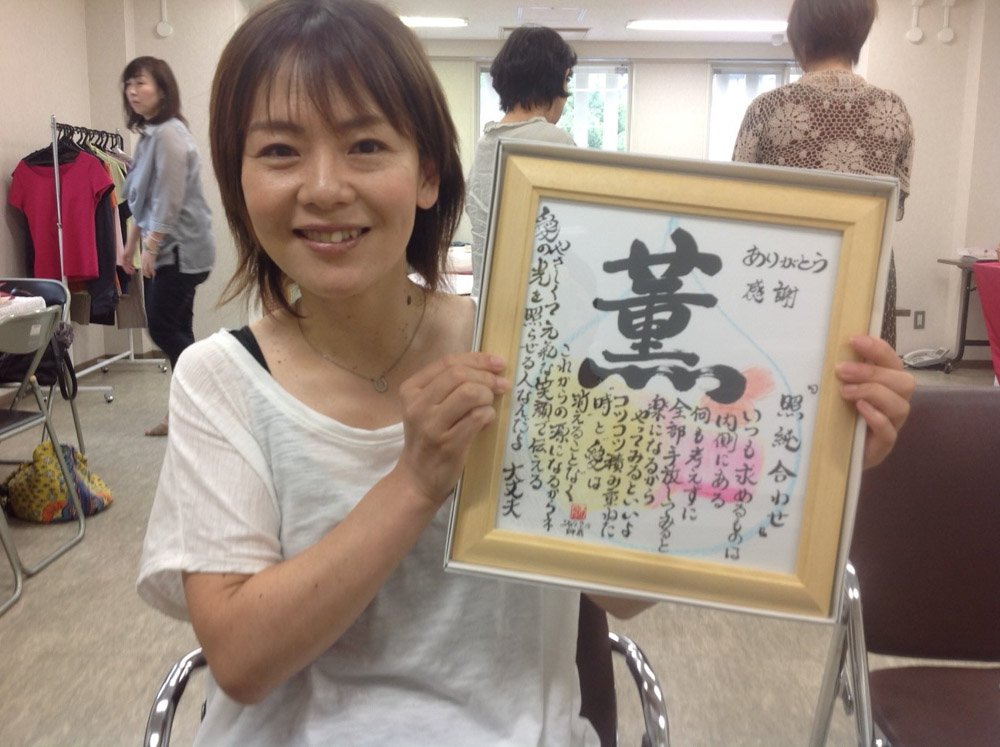 ありがとう
感謝
薫
"照純合わせ"
いつも求めるものは
内側にある
何も考えずに
全部手放してみると
楽になるから
やってみるといいよ
コツコツ積み重ねた
時と愛は
消えることなく
これからの源になるからネ
やさしくて元気な笑顔で伝える
愛の光を照らせる人なんだよ 大丈夫